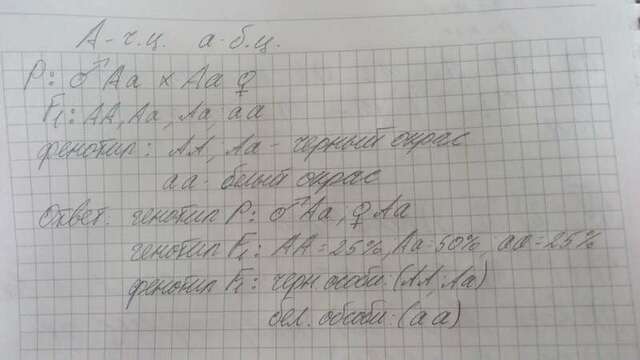 А-ч.ц. а-б.ц.
Р: ♂Аа × Аа ♀
F₁: АА, Аа, Аа, аа
фенотип: АА, Аа - черный окрас
аа - белый окрас
Ответ: генотип Р: ♂Аа; ♀Аа
генотип F₁: АА=25%, Аа=50%; аа=25%
фенотип F₁: черн особи (АА; Аа)
бел. обсоби (аа)